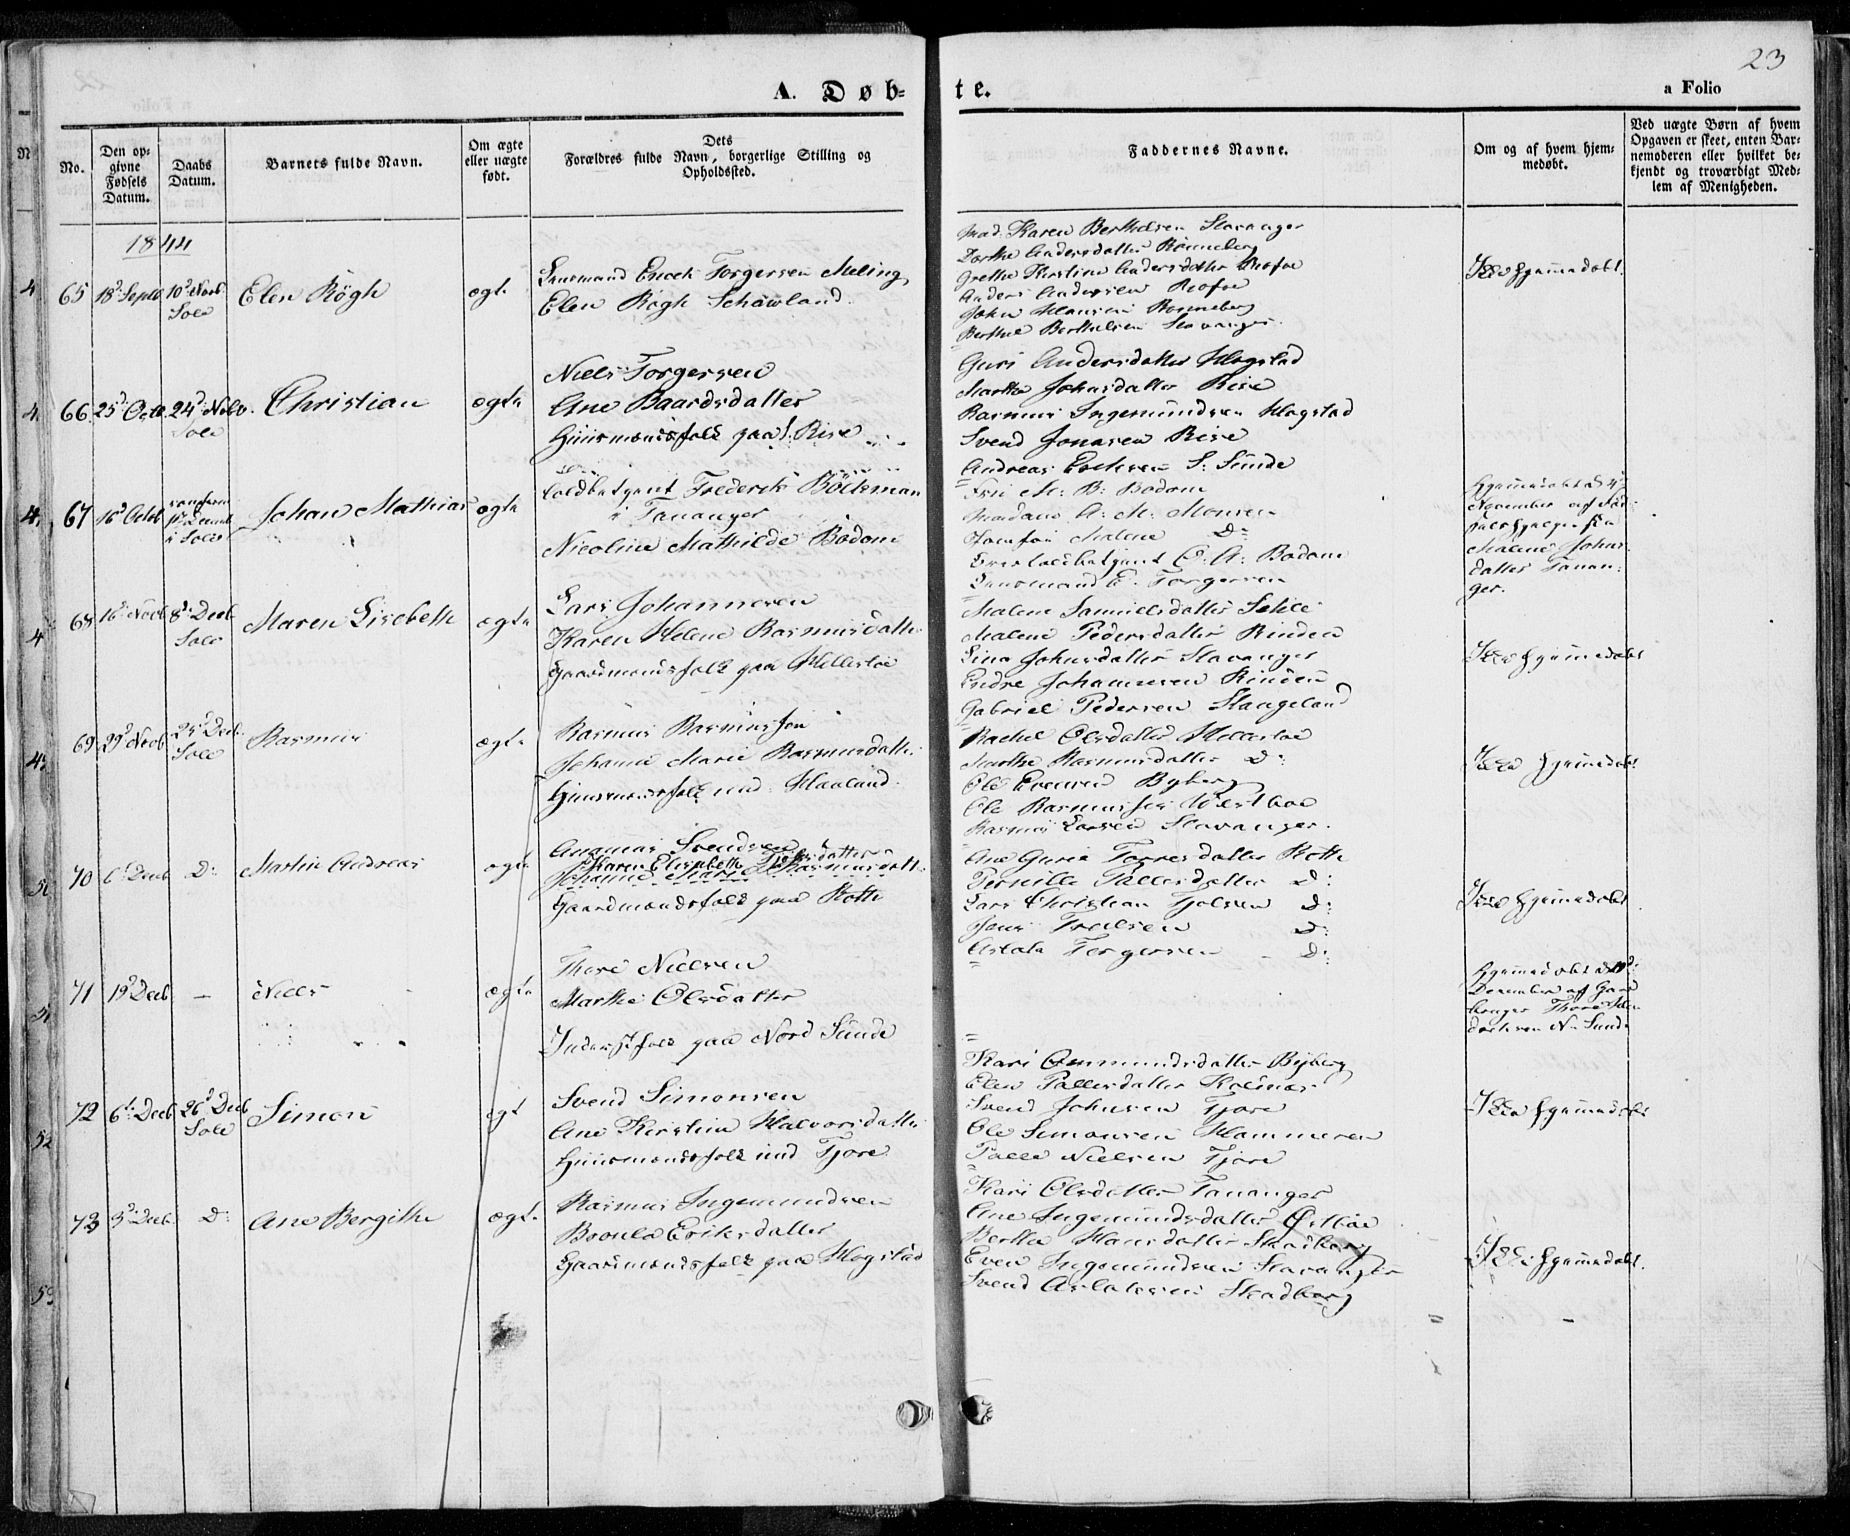 23
A. Døb-
te.
a Folio
No.
Den op-
givne
Fødsels
Datum.
Daabs
Datum.
Barnets fulde Navn.
Om ægte
eller uægte
født.
Dets
Forældres fulde Navn, borgerlige Stilling og
Opholdssted.
Faddernes Navne.
Om og af hvem hjem-
medøbt.
Ved uægte Børn af hvem
Opgaven er skeet, enten Bar-
nemoderen eller hvilket be-
kjendt og troværdigt Med-
lem af Menigheden.
1844
65
18d Septb
10d Novb
Sole
Elen Røgh
ægte
Lensmand Torgersen Meling
Elen Røgh
Mad. Karen Berthelsen Stavanger
Dorthe Andersdatter Rønneberg
Grethe Kirstine Andersdatter
Anders Andersen
John Hansen Rønneberg
Berthel Berthelsen Stavanger
Ikke hjemmedøbt
66
25d Octb
24d Novb.
Sole
Christian
ægte
Niels Torgersen
Ane Baardsdatter
Huusmandsfolk paa Rise
Guri Andersdatter Hogstad
Marthe Johnsdatter Rise
Rasmus Ingemundsen Hogstad
Svend Jonasen Rise
Andreas S: Sunde
67
16d Octb
Johan Mathias
ægte
Toldbetjent Frederik Böckman
i Tananger
Nicoline Mathilde Bodom
M: B: Bodom
Madam A: M: Monsen
Jomfru Malene D:
Overtoldbetjent O: A: Bodom
Lensmand E: Torgersen
Hjemmedøbt d 4d
November af
Malene Johns-
datter Tanan-
ger.
68
16d Novb
8d Decb
Sole
Maren Lisebeth
ægte
Lars Johannesen
Karen Helene Rasmusdatter
Gaardmandsfolk paa Hellestøe
Malene Samuelsdatter
Malene Pedersdatter
Lina Johnsdatter Stavanger
Endre Johannesen
Gabriel Pedersen Stangeland
Ikke hjemmedøbt
69
29d Novb
25d Decb.
Sole
Rasmus
ægte
Rasmus Rasmussen
Johanna Marie Rasmusdatter
Huusmandsfolk und: Haaland
Rachel Olsdatter Hellestøe
Marthe Rasmusdatter D:
Ole Evensen Byberg
Ole Rasmussen
Rasmus Larsen Stavanger.
Ikke hjemmedøbt
70
6d Decb
D:
Martin Andreas
ægte
Ananias Svendsen
Karen Elisabeth
Johanne Marie Rasmusdatter
Gaardmandsfolk paa Rotte
Ane Gurie Torresdatter Rotte
Pernille Tallersdatter D:
Lars Christian D:
Jens D:
Aslak Torgersen D:
Ikke hjemmedøbt
71
19d Decb
—
Niels
ægte
Thore Nielsen
Marthe Olsdatter
Inderstfolk paa Nord Sunde
Hjemmedøbt d 19d
December af Gaard
bruger Thore
N: Sunde
72
6d Decb
26d Decb
Sole
Simon
ægte
Svend Simonsen
Ane Kirstine Halvorsdatter
Huusmandsfolk und Tjore
Kari Ommundsdatter Byberg
Elen Tallersdatter Kolnæs
Svend Johnsen Tjore
Ole Simonsen Hammeren
Talle Nielsen Tjore
Ikke hjemmedøbt
73
3d Decb.
D:
Ane Bergithe
ægte
Rasmus Ingemundsen
Eriksdatter
Gaardmandsfolk paa Hogstad
Kari Olsdatter Tananger
Ane Ingemundsdatter Østbøe
Berthe Hansdatter Skadberg
Even Ingemundsen Stavanger
Svend Aslaksen Skadberg
Ikke hjemmedøbt.